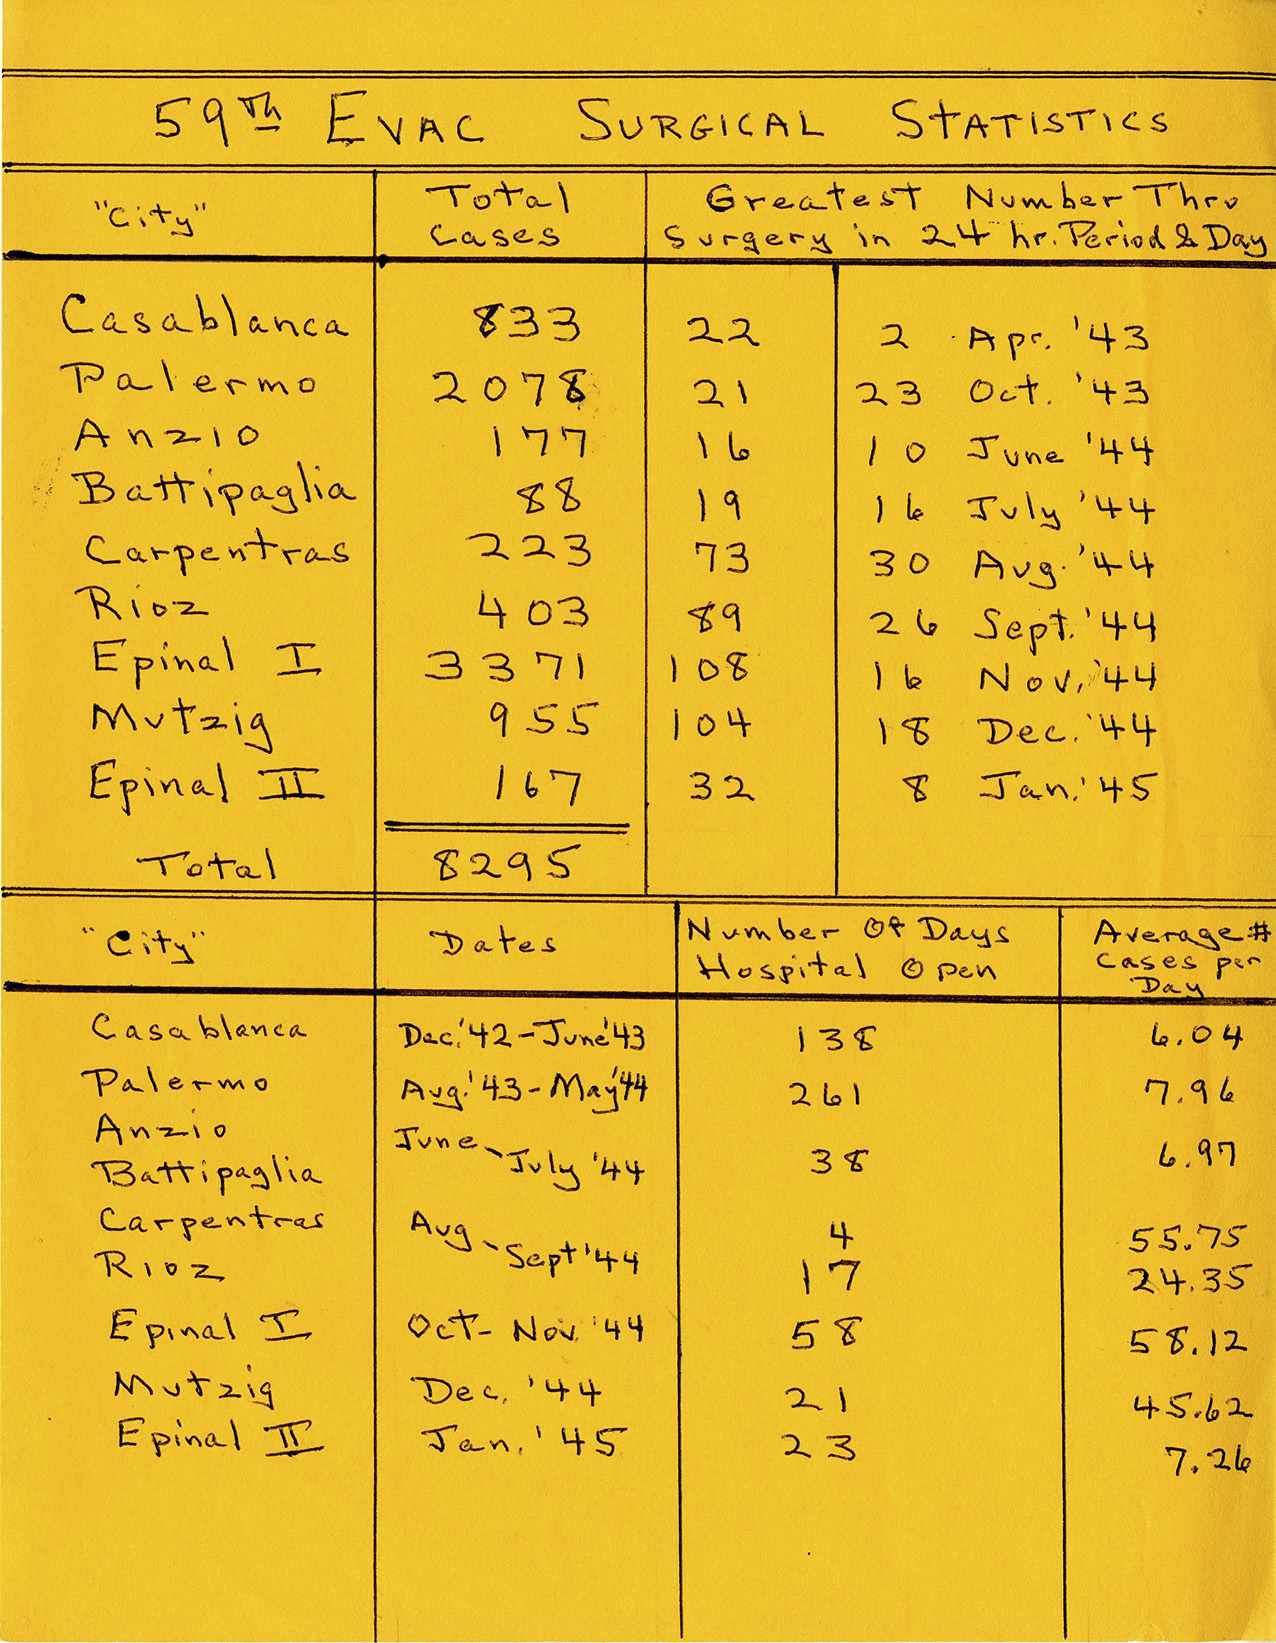 59th EVAC SURGICAL STATISTICS
"City" Total Cases Greatest Number Thru Surgery in 24 hr. Period & Day
Casablanca 833 22 2 Apr. '43
Palermo 2078 21 23 Oct. '43
Anzio 177 16 10 June '44
Battipaglia 88 19 16 July '44
Carpentras 223 73 30 Aug. '44
Rioz 403 89 26 Sept. '44
Epinal I 3371 108 16 Nov. '44
Mutzig 955 104 18 Dec. '44
Epinal II 167 32 8 Jan. '45
Total 8295
"City" Dates Number Of Days Hospital Open Average # Cases per Day
Casablanca Dec. '42 - June '43 138 6.04
Palermo Aug. '43 - May '44 261 7.96
Anzio June -
Battipaglia July '44 38 6.97
Carpentras Aug - 4 55.75
Rioz Sept '44 17 24.35
Epinal I Oct - Nov. '44 58 58.12
Mutzig Dec. '44 21 45.62
Epinal II Jan. '45 23 7.26